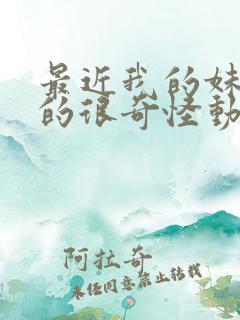 最近我的妹
的很奇怪動
阿拉奇
未经同意禁止转载